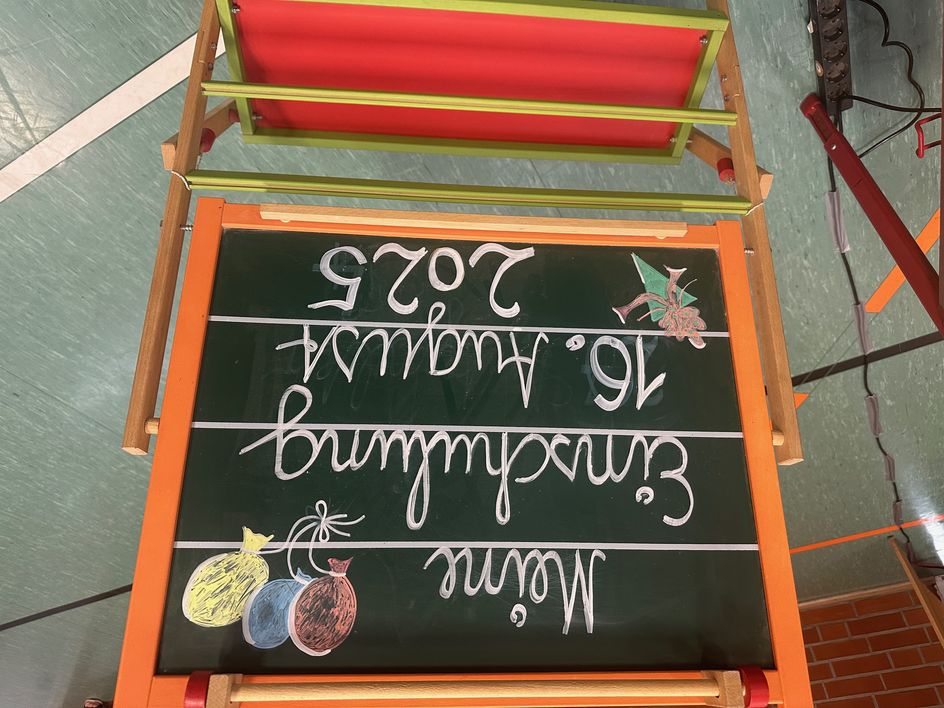 Meine
Einschulung
16. August
2025